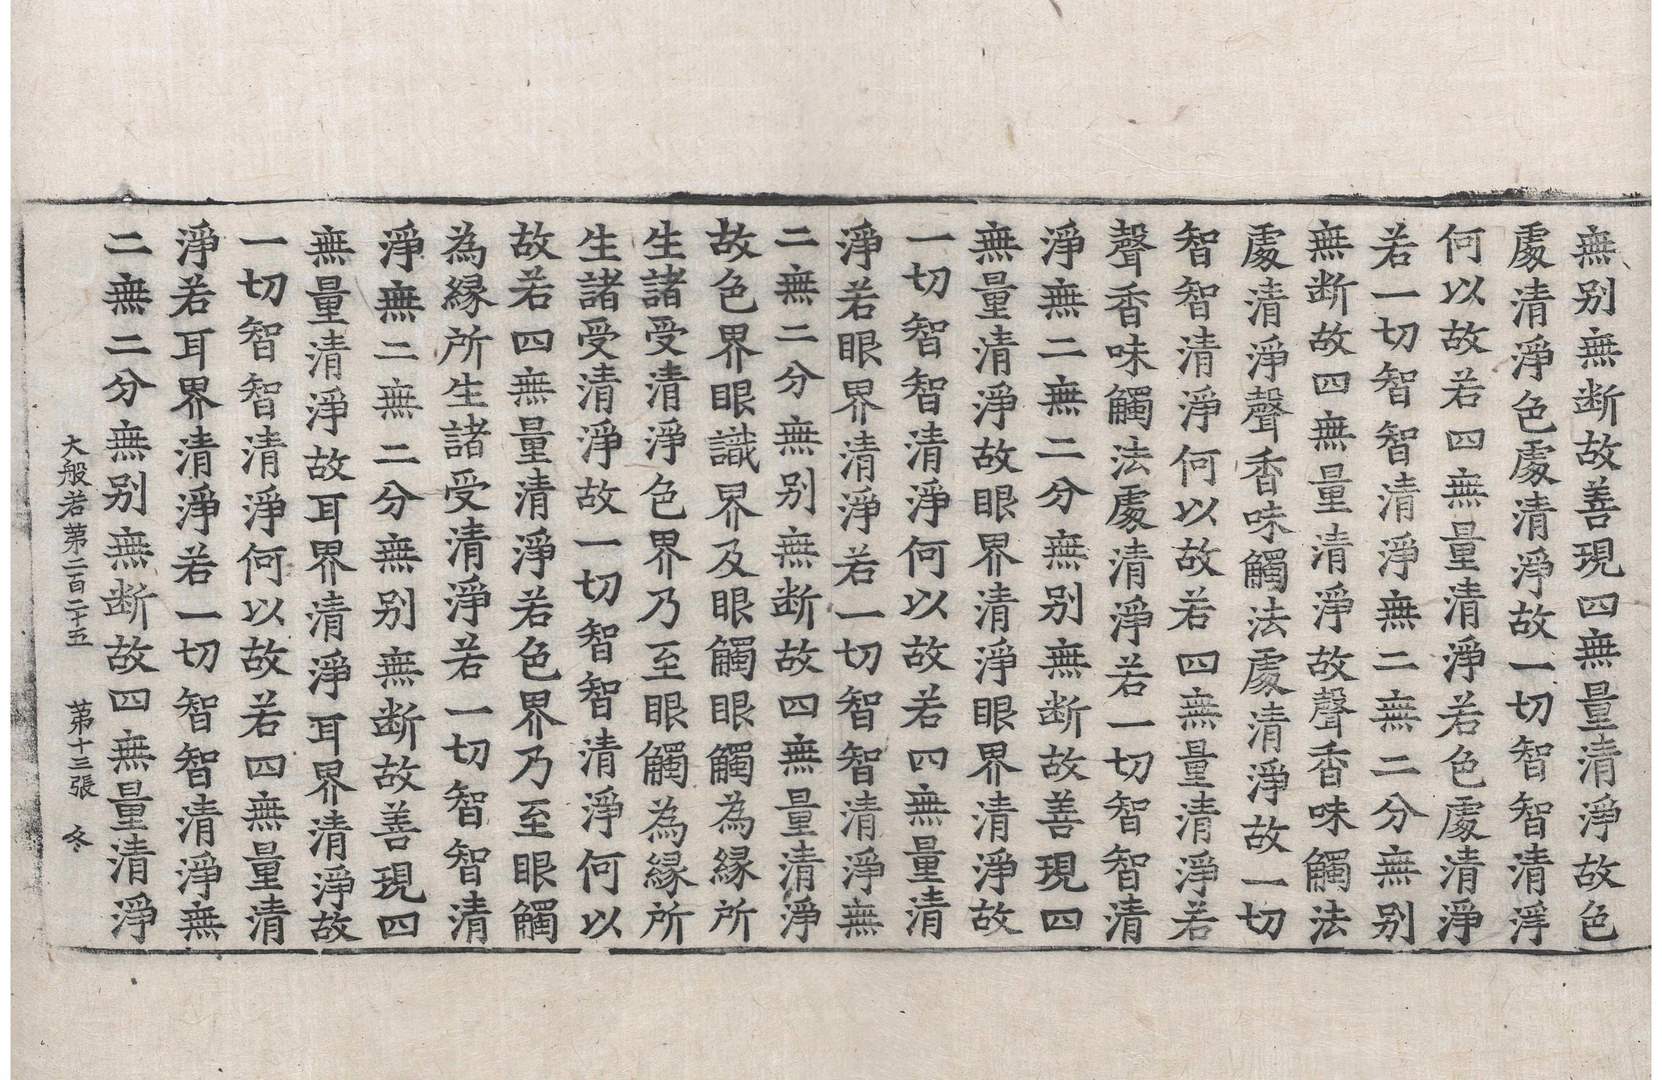 無别無断故善現四無量清淨故色
處清淨色處清淨故一切智智清淨
何以故若四無量清淨若色處清淨
若一切智智清淨無二無二分無别
無断故四無量清淨故聲香味觸法
處清淨聲香味觸法處清淨故一切
智智清淨何以故若四無量清淨若
聲香味觸法處清淨若一切智智清
淨無二無二分無别無断故善現四
無量清淨故眼界清淨眼界清淨故
一切智智清淨何以故若四無量清
淨若眼界清淨若一切智智清淨無
二無二分無别無断故四無量清淨
故色界眼識界及眼觸眼觸為縁所
生諸受清淨色界乃至眼觸為縁所
生諸受清淨故一切智智清淨何以
故若四無量清淨若色界乃至眼觸
為縁所生諸受清淨若一切智智清
淨無二無二分無别無断故善現四
無量清淨故耳界清淨耳界清淨故
一切智智清淨何以故若四無量清
淨若耳界清淨若一切智智清淨無
二無二分無别無断故四無量清淨
大般若第二百二十五 第十三張 冬